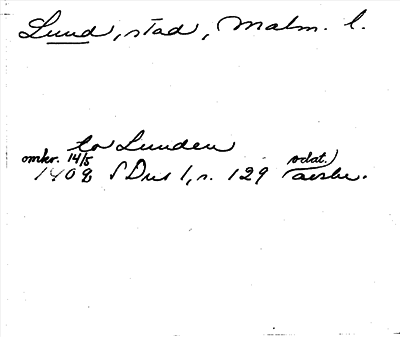 Lund, stad, Malm. l.
to Lunden
omkr. 14/5 odat.)
1408 SDns 1, s. 129 avskr.